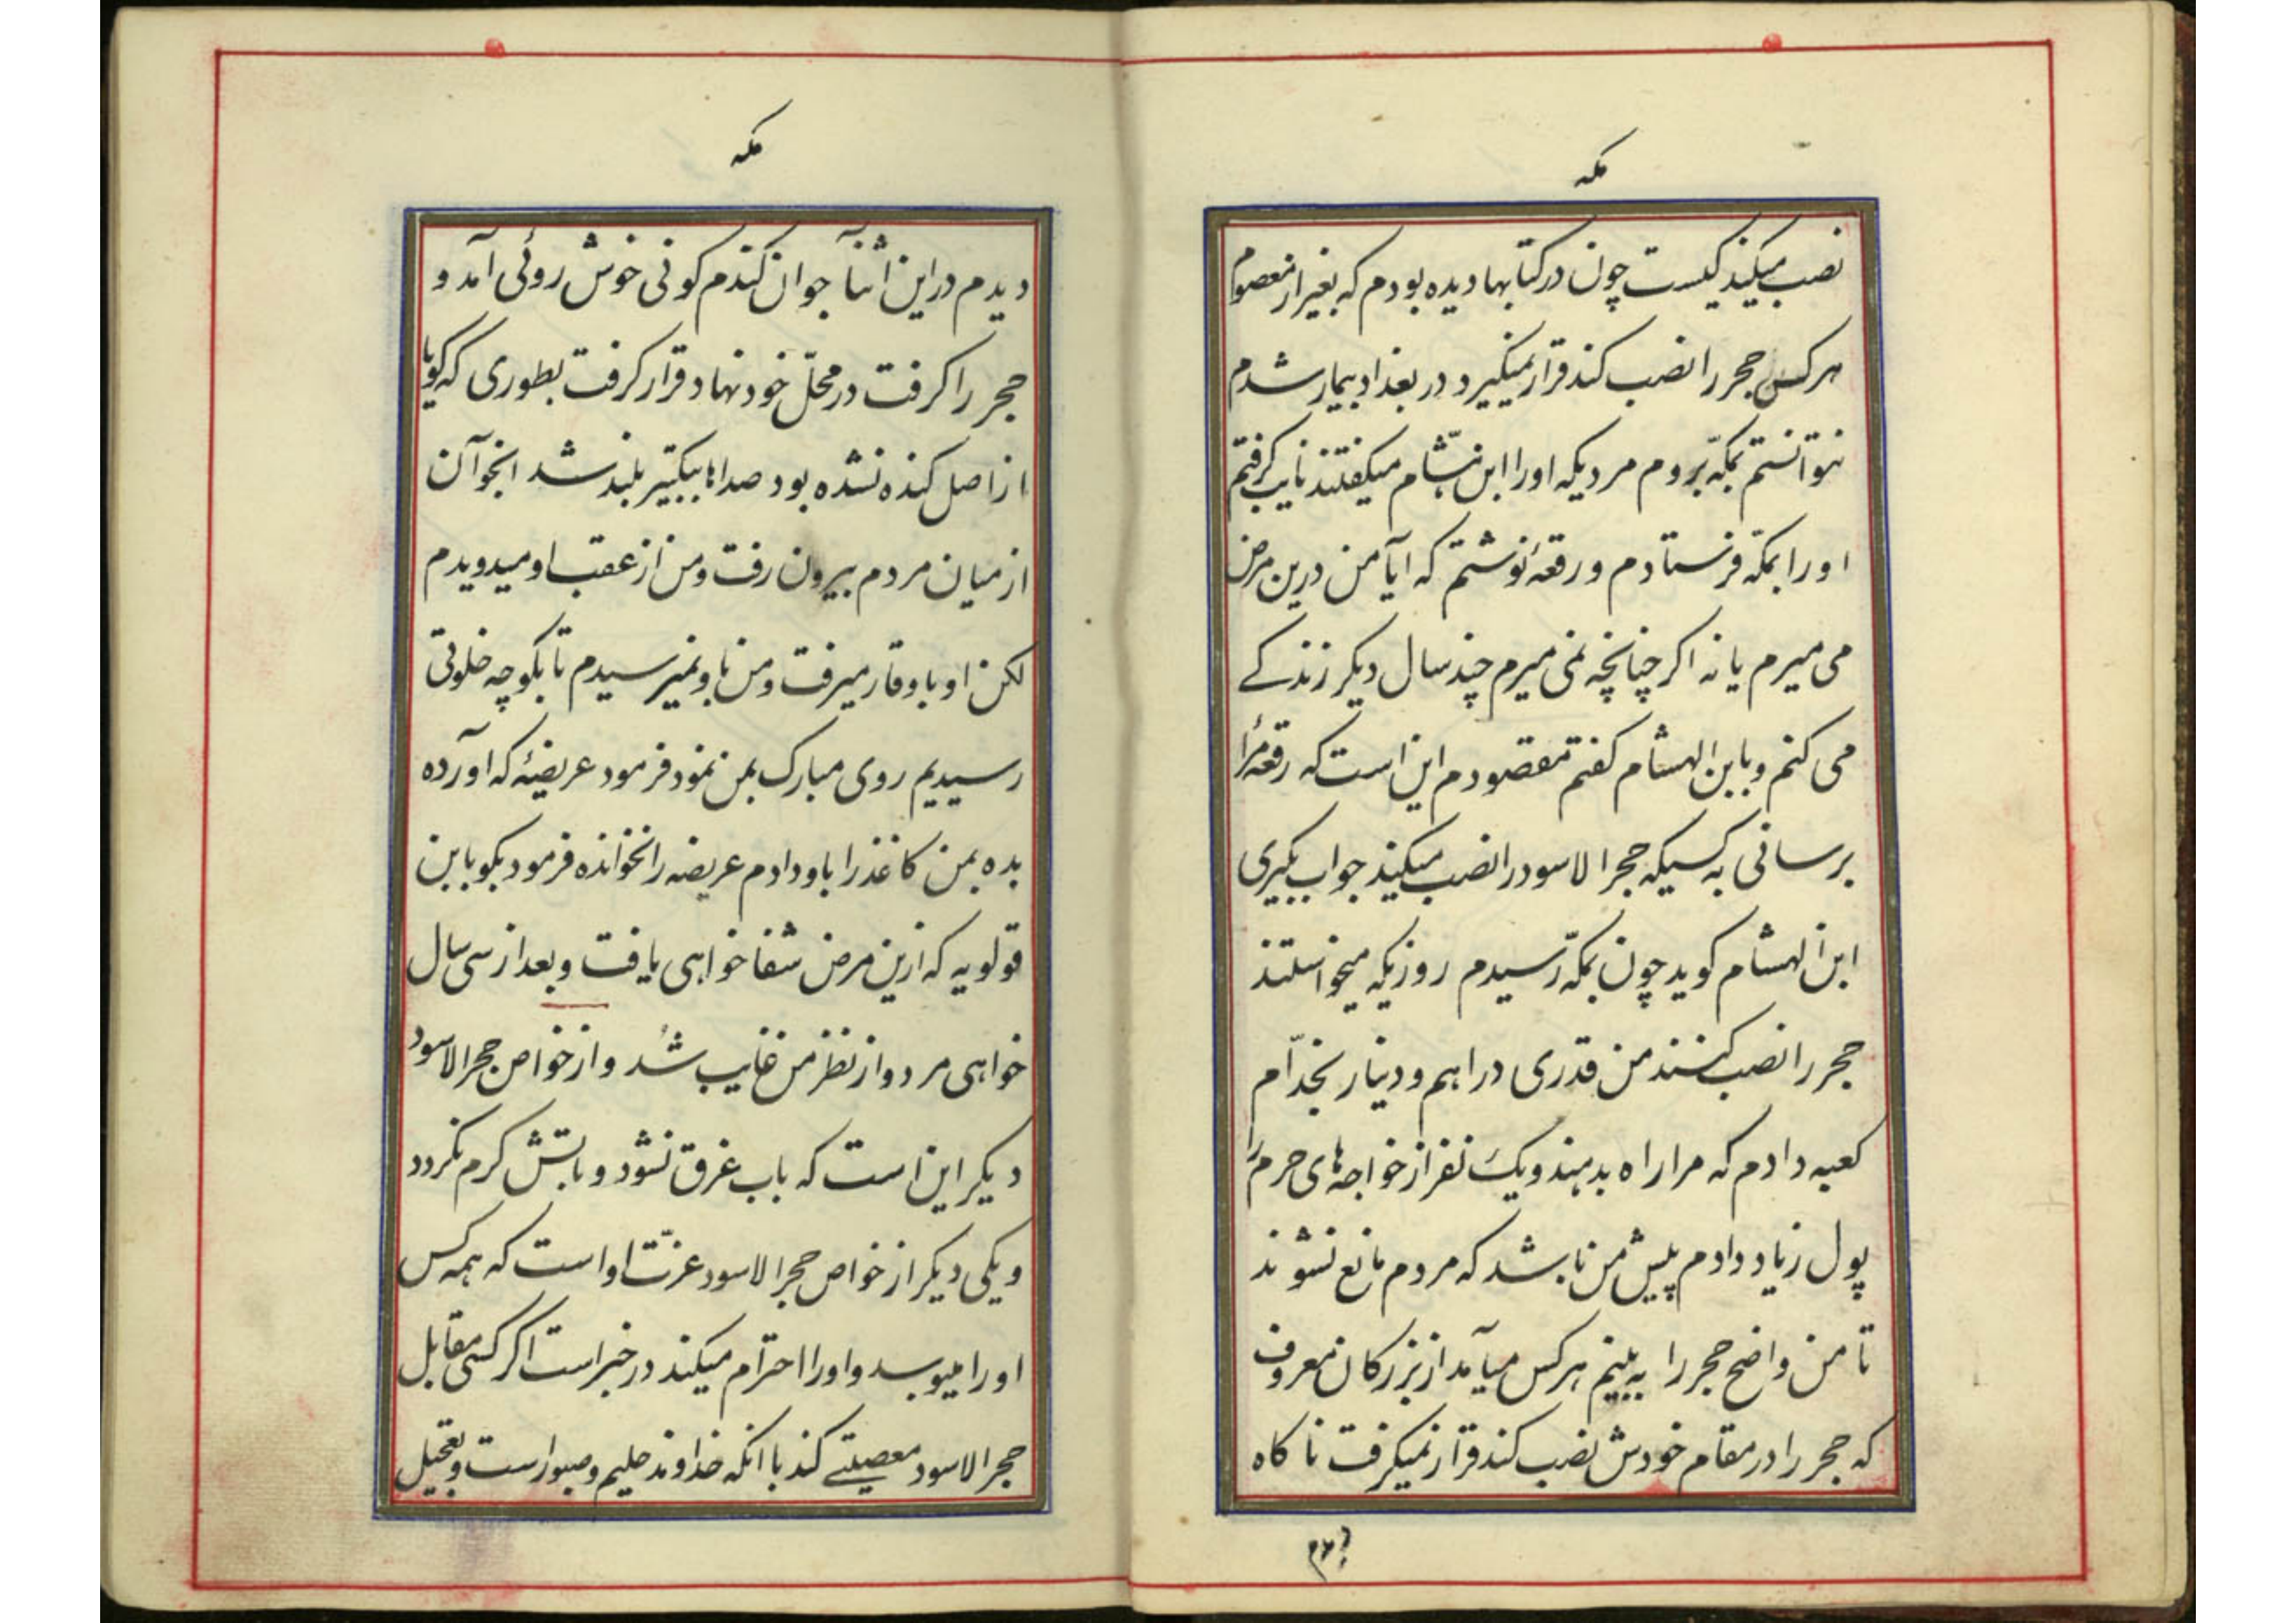 مکه
نصب میکند کیست چون در کتابها دیده بودم که بغیر از معصوم
هر کس حجر را نصب کند قرار نمیگیرد در بغداد بیمار شدم
نتوانستم بمکّه بروم مردیکه او را ابن هشام میکفتند نایب کرفتم
او را بمکّه فرستادم و رقعهٔ نوشتم که آیا من درین مرض
می میرم یا نه اکر چنانچه نمی میرم چند سال دیکر زندکے
می کنم و بابن الهشام کفتم مقصودم این است که رقعهٔ مرا
برسانی به کسیکه حجر الاسود را نصب میکند جواب بکیری
ابن الهشام کوید چون بمکّه رسیدم روزیکه میخواستند
حجر را نصب کنند من قدری دراهم و دینار بخدّام
کعبه دادم که مرا راه بدهند و یک نفر از خواجه های حرم را
پول زیاد دادم پیش من باشد که مردم مانع نشوند
تا من واضح حجر را به بینم هر کس میآمد از بزرکان معروف
که حجر را در مقام خودش نصب کند قرار نمیکرفت ناکاه
دیدم
مکه
دیدم در این اثنآ جوان کندم کونی خوش روئی آمد و
حجر را کرفت در محلّ خود نهاد قرار کرفت بطوری که کویا
از اصل کنده نشده بود صداها بتکبیر بلند شد انجوآن
از میان مردم بیرون رفت و من از عقب او میدویدم
لکن او با وقار میرفت و من باو نمیرسیدم تا بکوچه خلوتی
رسیدیم روی مبارک بمن نمود فرمود عریضهٔ که اورده
بده بمن کاغذ را باو دادم عریضه را نخوانده فرمود بکو بابن
قولویه که ازین مرض شفا خواهی یافت و بعد از سی سال
خواهی مرد و از نظر من غایب شد و از خواص حجر الاسود
دیکر این است که باب غرق نشود و باتش کرم نکردد
و یکی دیکر از خواص حجر الاسود عزّت او است که همه کس
او را میبوسد و او را احترام میکند در خبر است اکر کسی مقابل
حجر الاسود معصیتے کند با انکه خداوند حلیم و صبور است و تعجیل